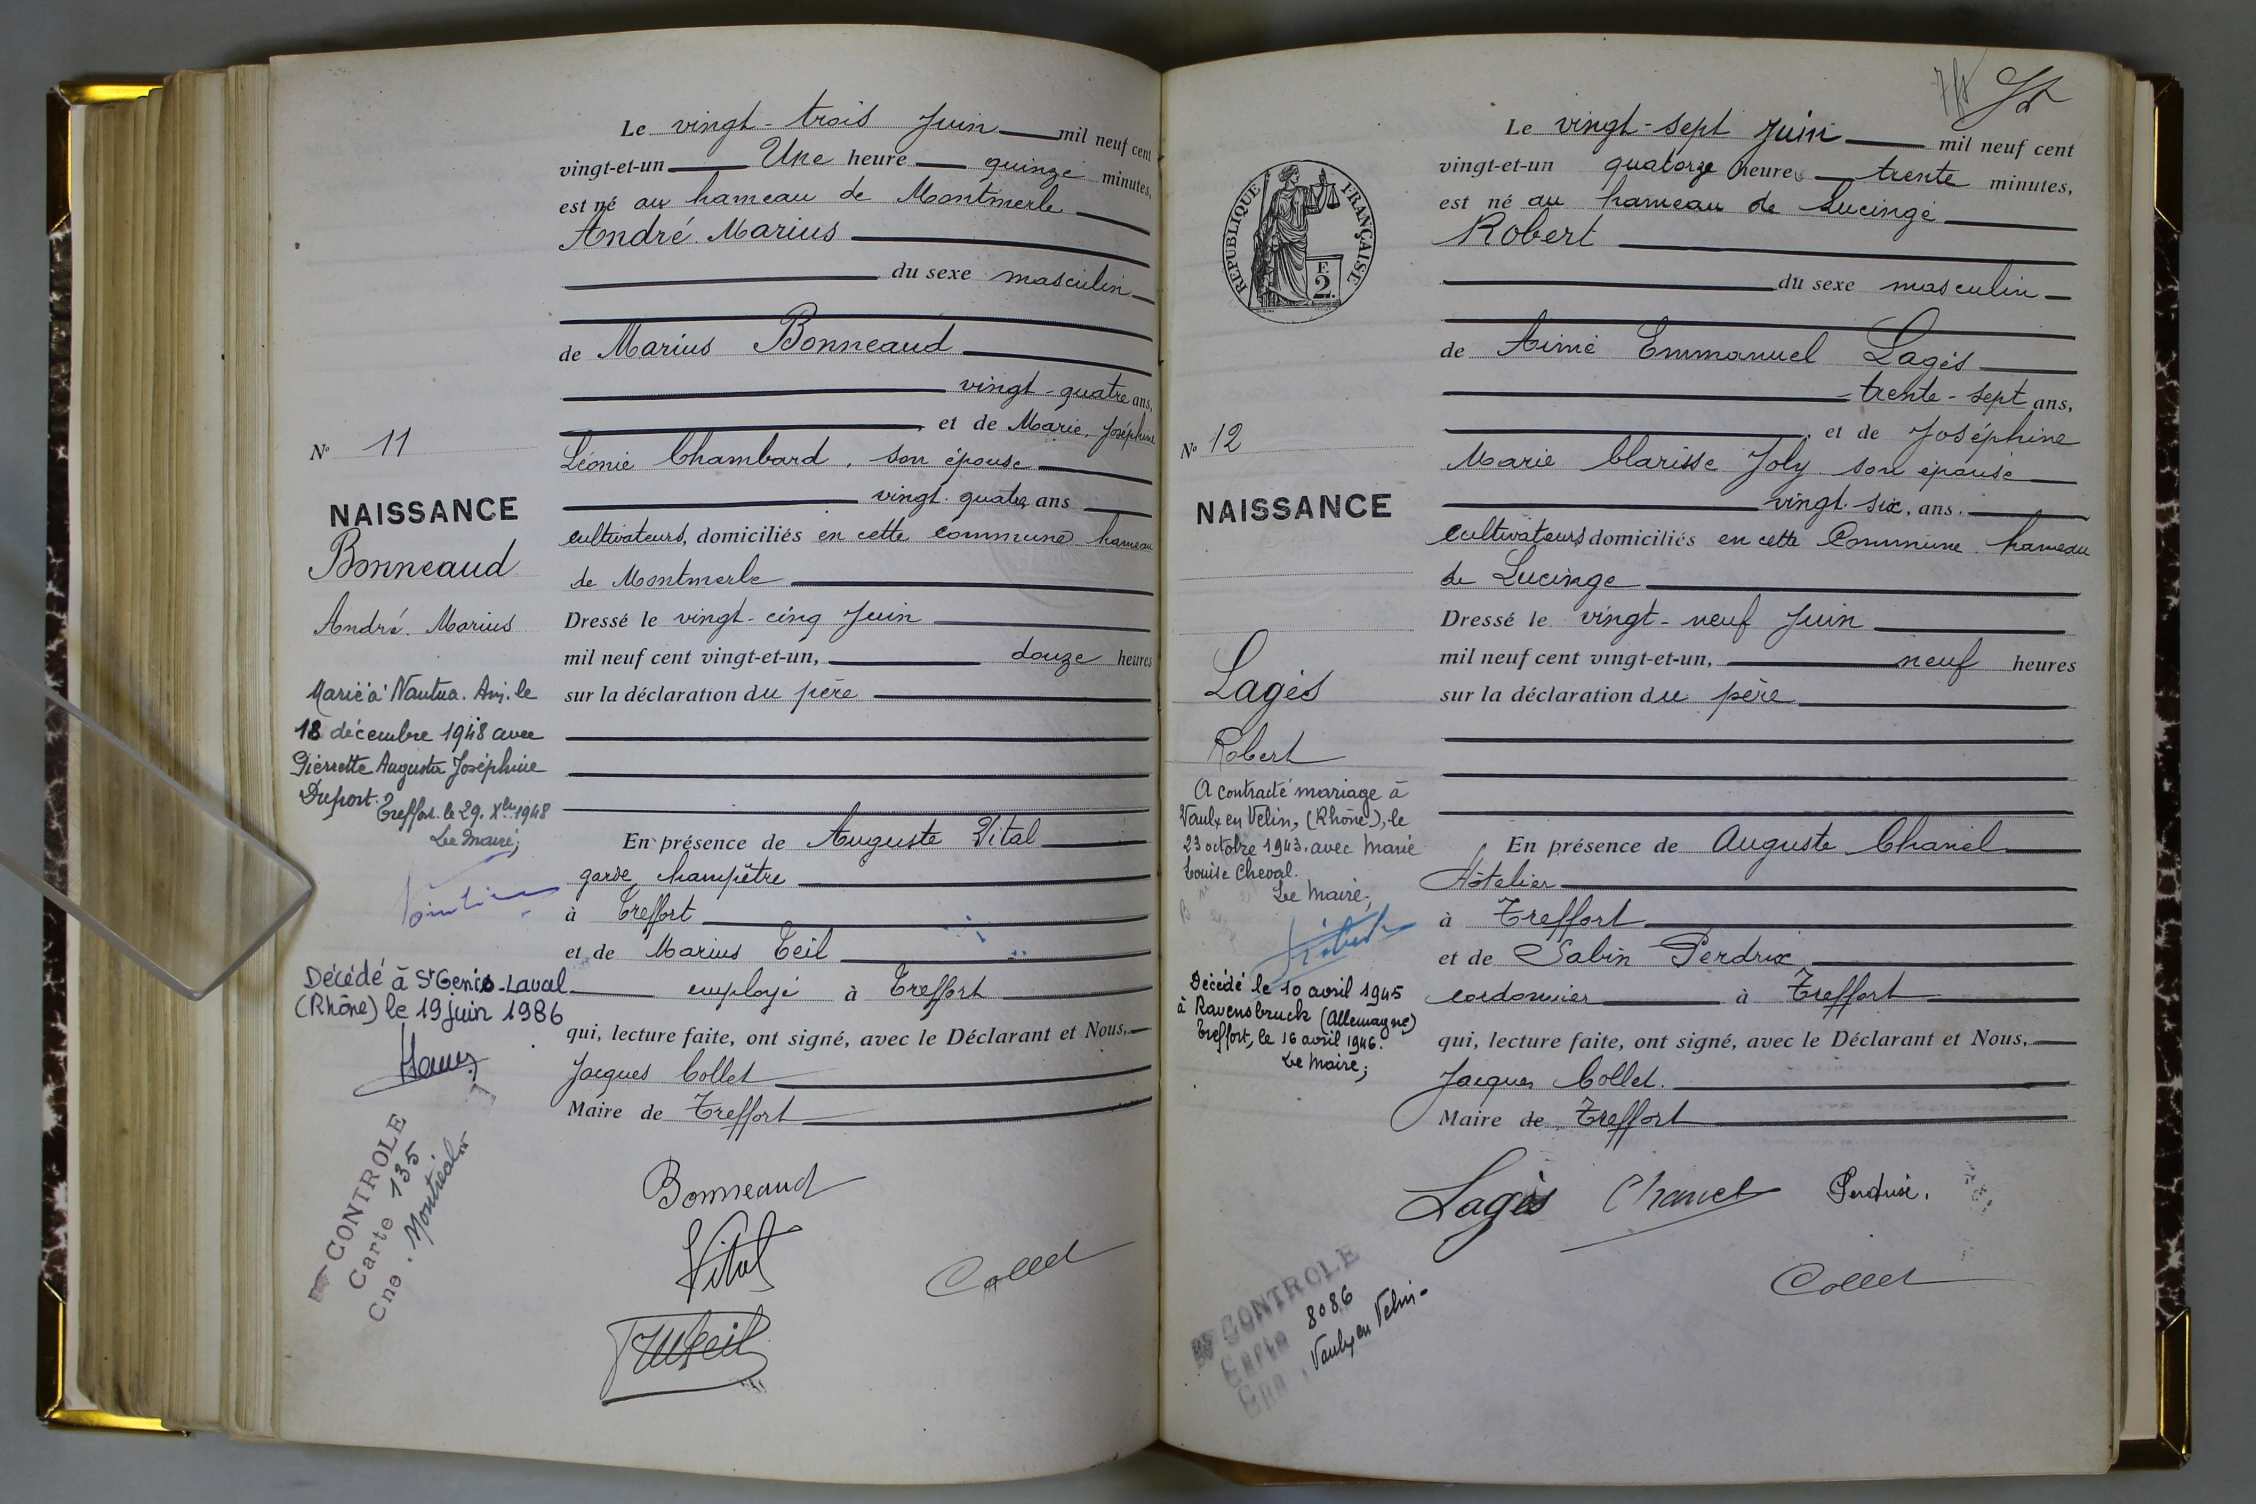 Le vingt-trois Juin mil neuf cent
vingt-et-un Une heure quinze minutes,
est né au hameau de Montmerle
André Marius
du sexe masculin
de Marius Bonneaud
vingt-quatre ans,
, et de Marie, Joséphine
Léonie Chambard, son épouse
vingt-quatre ans
cultivateurs, domiciliés en cette commune hameau
de Montmerle
Dressé le vingt-cinq Juin
mil neuf cent vingt-et-un, douze heures
sur la déclaration du père
En présence de Auguste Vital
garde champêtre
à Treffort
et de Marius Teil
employé à Treffort
qui, lecture faite, ont signé, avec le Déclarant et Nous,
Jacques Collet
Maire de Treffort
Bonneaud
Vital
Collet
N° 11
NAISSANCE
Bonneaud
André Marius
Marié à Nantua. Ain. le
18 décembre 1948 avec
Pierrette Augusta Joséphine
Dupont.
Treffort. le 29. Xbre 1948
Le Maire;
Décédé à St Genis-Laval
(Rhône) le 19 juin 1986
CONTROLE
Carte 135
Cne. Montréal
Le vingt-sept Juin mil neuf cent
vingt-et-un quatorze heures trente minutes,
est né au hameau de Lucinge
Robert
du sexe masculin
de Aimé Emmanuel Lagès
trente-sept ans,
, et de Joséphine
Marie Clarisse Joly son épouse
vingt-six, ans.
cultivateurs domiciliés en cette Commune hameau
de Lucinge
Dressé le vingt-neuf Juin
mil neuf cent vingt-et-un, neuf heures
sur la déclaration du père
En présence de Auguste Chanel
Hôtelier
à Treffort
et de Sabin Perdrix
cordonnier à Treffort
qui, lecture faite, ont signé, avec le Déclarant et Nous,
Jacques Collet.
Maire de Treffort
Lagès Chanel
Collet
REPUBLIQUE FRANÇAISE
F.
2.
N° 12
NAISSANCE
Lagès
Robert
A contracté mariage à
Vaulx en Velin, (Rhône), le
23 octobre 1943, avec Marie
Louise Cheval.
Le Maire;
Décédé le 10 avril 1945
à Ravensbruck (Allemagne)
Treffort, le 16 avril 1946.
Le Maire;
CONTROLE
Carte 8086
Cne. Vaulx en Velin